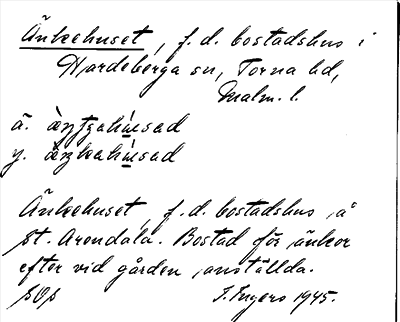 Änkehuset, f.d. bostadshus i
Hardeberga sn, Torna hd,
Malm. l.
ä. 
y. 
Änkehuset, f.d. bostadshus å
St. Arendala. Bostad för änkor
efter vid gården anställda.
SOS I. Ingers 1945.